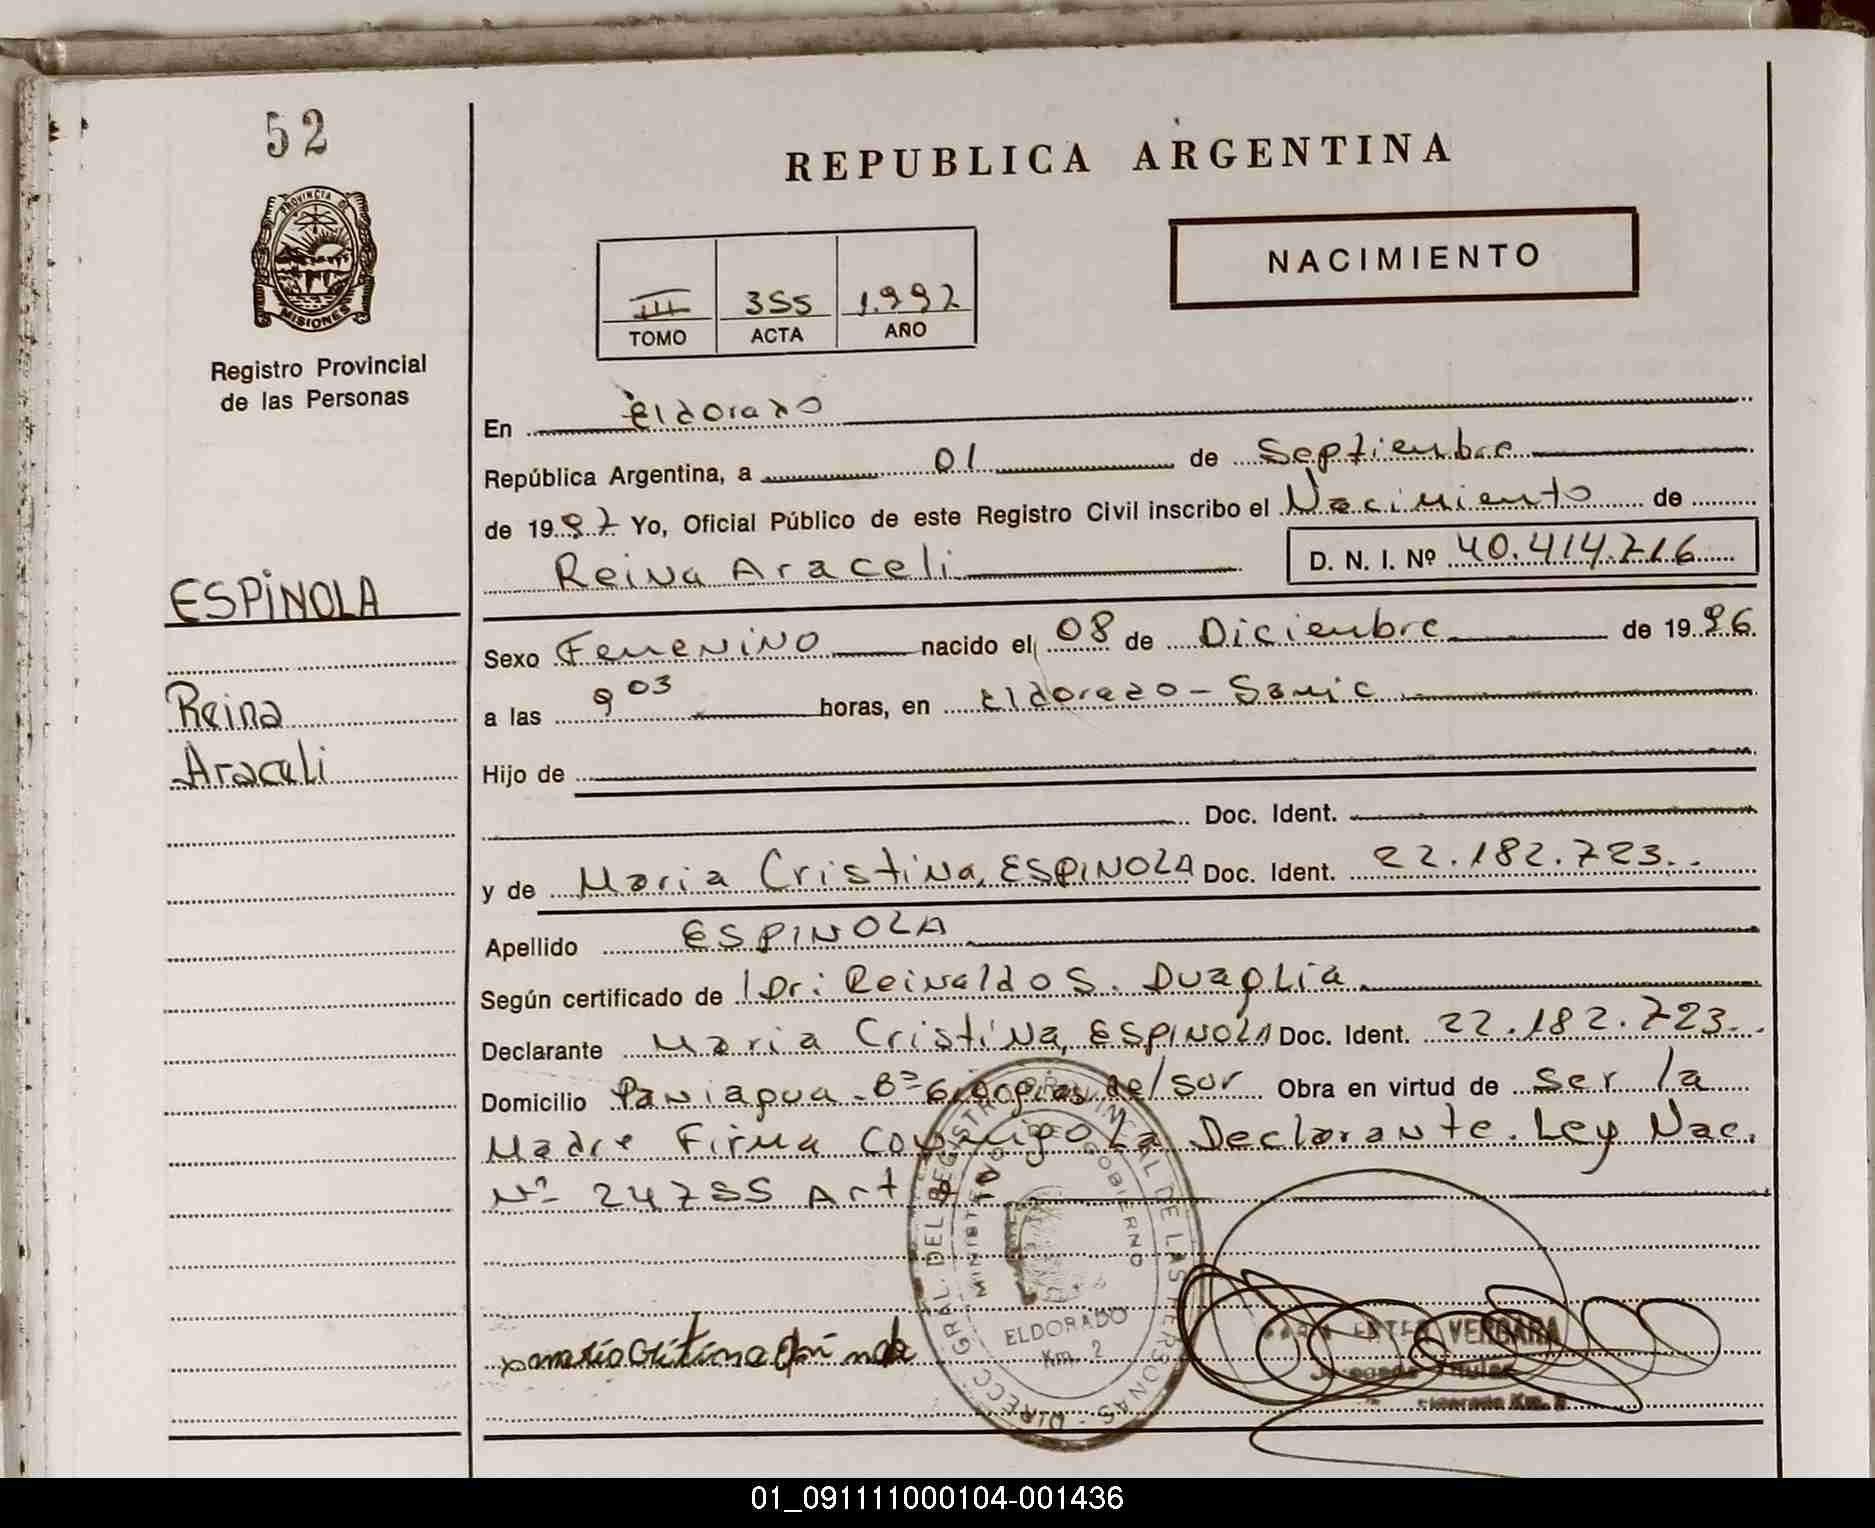 52
REPUBLICA ARGENTINA
PROVINCIA DE
MISIONES
Registro Provincial
de las Personas
NACIMIENTO
III 355 1.997
TOMO ACTA AÑO
En Eldorado
República Argentina, a 01 de Septiembre
de 1997 Yo, Oficial Público de este Registro Civil inscribo el Nacimiento de
Reina Araceli D. N. I. Nº 40.414.716
ESPINOLA
Reina
Araceli
Sexo Femenino nacido el 08 de Diciembre de 1996
a las 9 03 horas, en Eldorado - Samic
Hijo de
Doc. Ident.
y de Maria Cristina, ESPINOLA Doc. Ident. 22.182.723
Apellido ESPINOLA
Según certificado de Dr: Reinaldo S.
Declarante Maria Cristina, ESPINOLA Doc. Ident. 22.182.723
Domicilio Paniagua - Bº del Sur Obra en virtud de ser la
Madre Firma Conmigo La Declarante. Ley Nac.
Nº 24755 Art
DIRECC. GRAL. DEL REGISTRO PROVINCIAL DE LAS PERSONAS
MINISTERIO DE GOBIERNO
ELDORADO
Km. 2
VERGARA
01_091111000104-001436